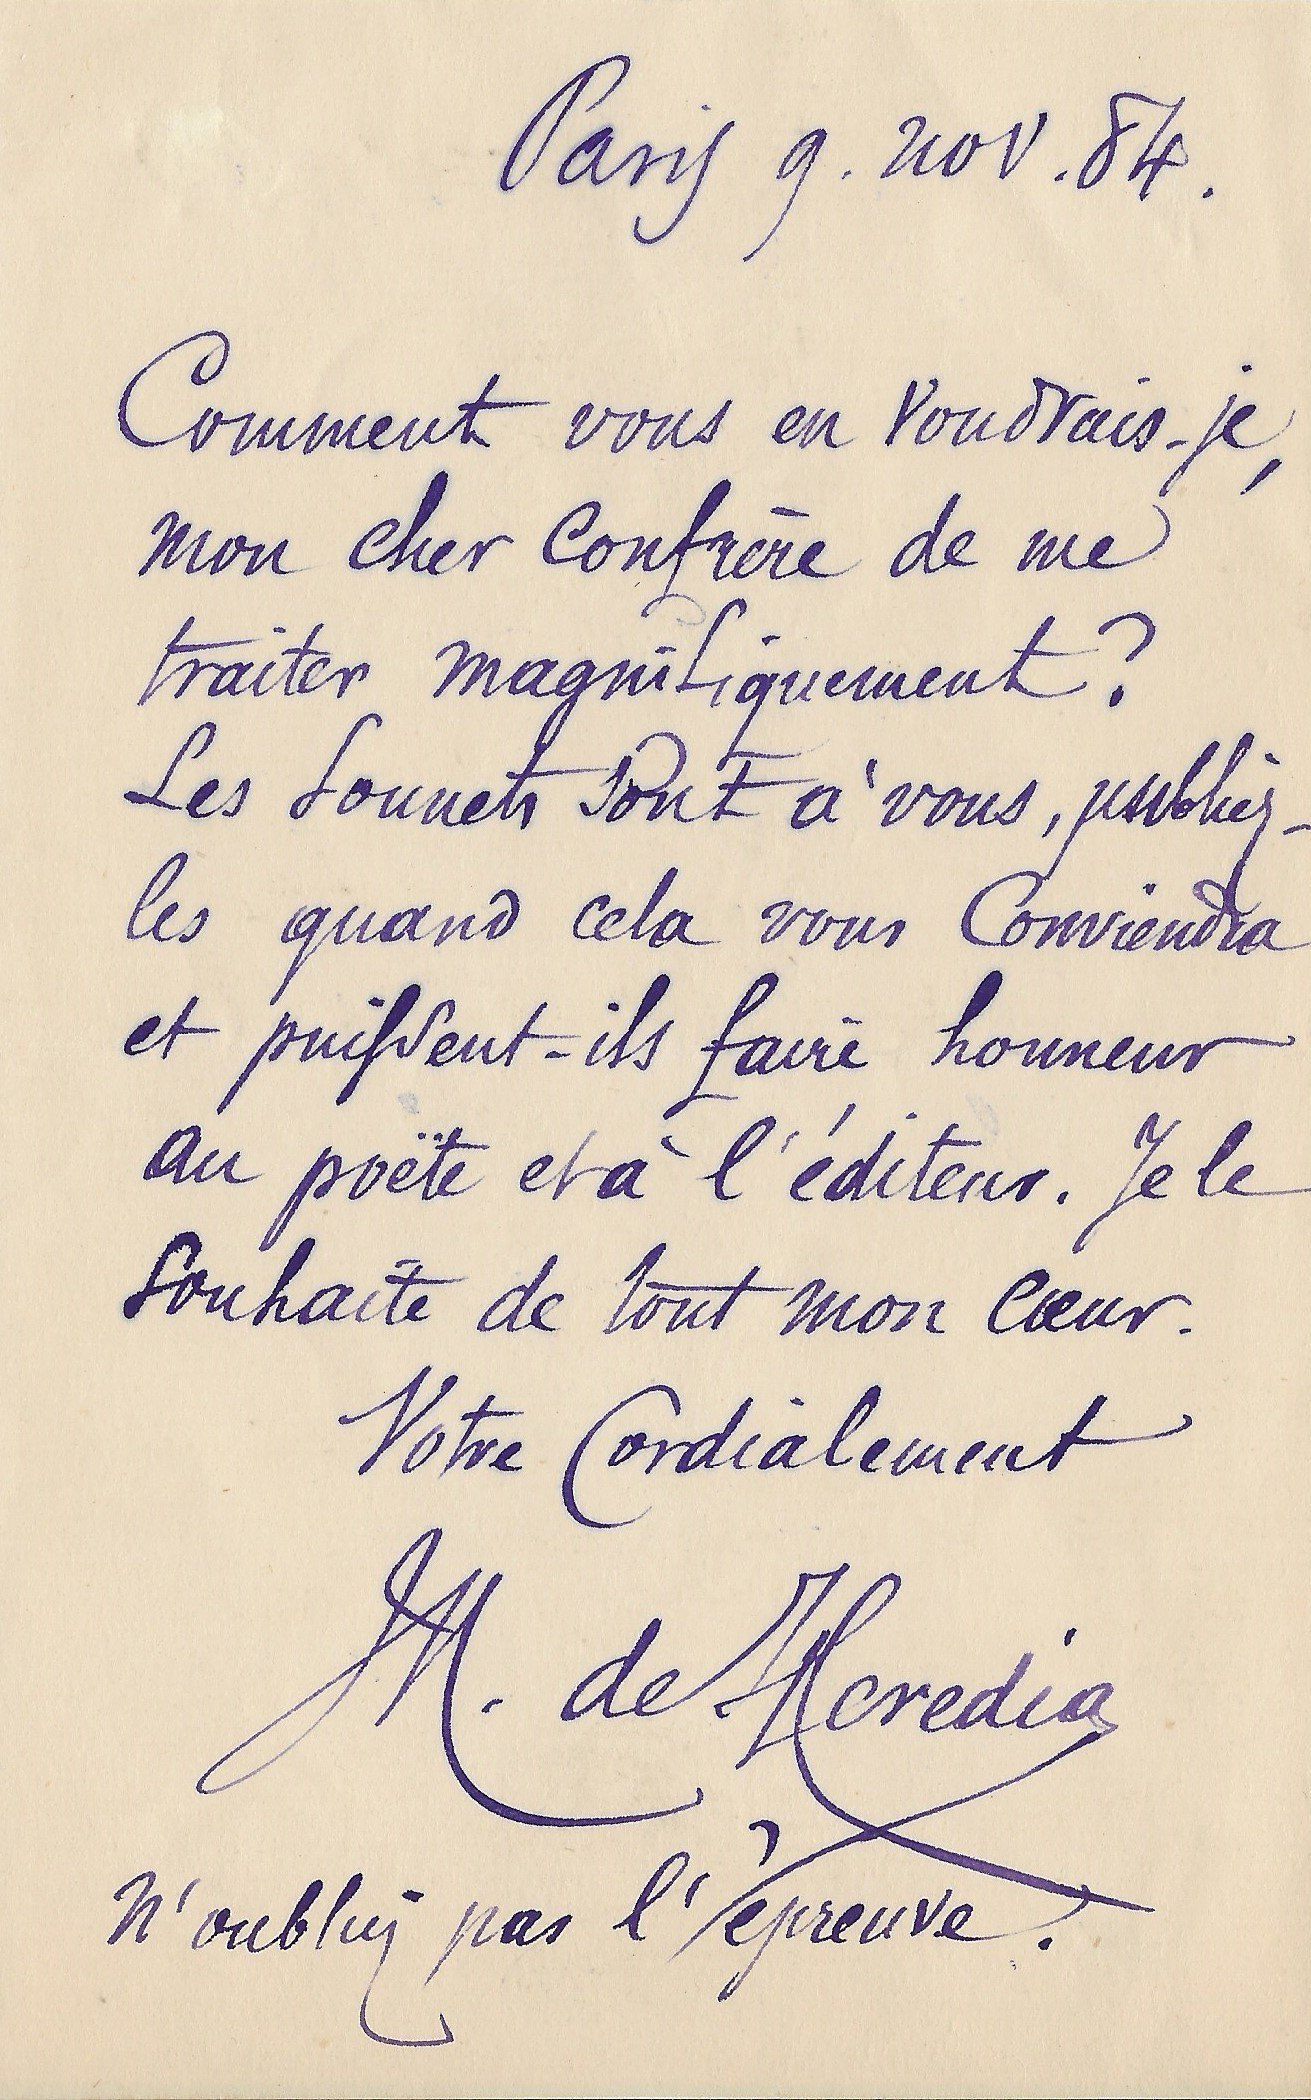 Paris 9. nov. 84.
Comment vous en voudrais-je,
mon cher confrère de me
traiter magnifiquement?
Les sonnets sont à vous, publiez-
les quand cela vous conviendra
et puissent-ils faire honneur
au poëte et à l'éditeur. Je le
souhaite de tout mon cœur.
Votre cordialement
M. de Heredia
N'oubliez pas l'épreuve.